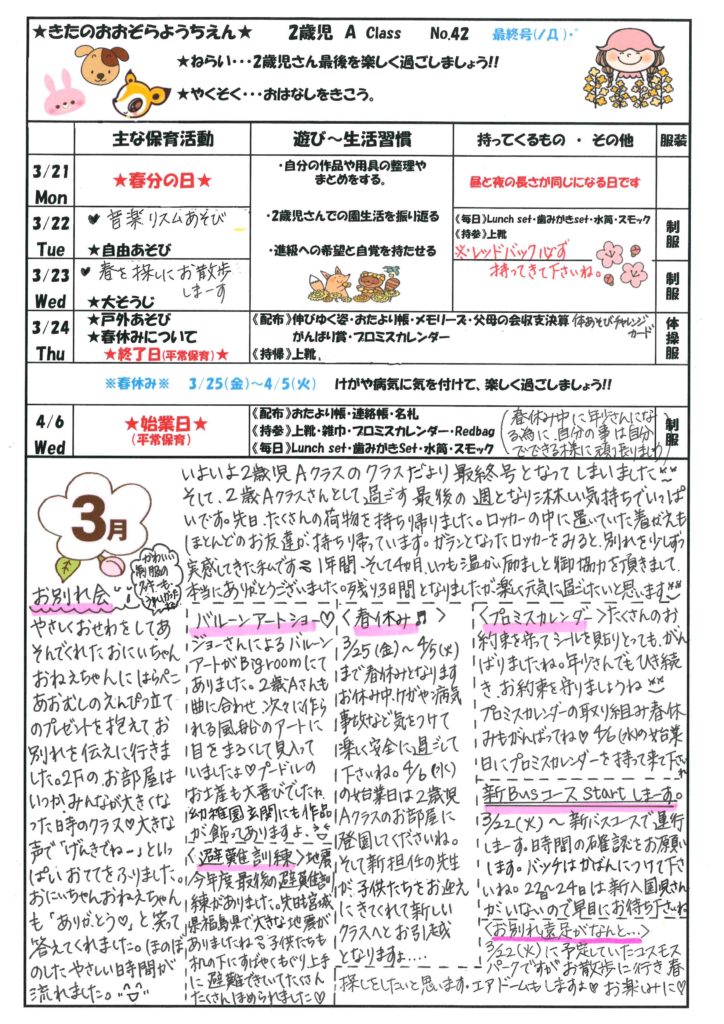 ★きたのおおぞらようちえん★ 2歳児 A Class No.42 最終号(ﾉД`)･゜
★ねらい･･･2歳児さん最後を楽しく過ごしましょう!!
★やくそく･･･おはなしをきこう。
主な保育活動 遊び～生活習慣 持ってくるもの ・ その他 服装
3/21 Mon ★春分の日★ 昼と夜の長さが同じになる日です
・自分の作品や用具の整理や
まとめをする。
・2歳児さんでの園生活を振り返る
・進級への希望と自覚を持たせる
3/22 Tue ♥ 音楽リズムあそび
★自由あそび
《毎日》Lunch set・歯みがきset・水筒・スモック
《持参》上靴
※レッドバック必ず
持ってきて下さいね。
制服
3/23 Wed ♥ 春を探しにお散歩
しまーす
★大そうじ
制服
3/24 Thu ★戸外あそび
★春休みについて
★終了日(平常保育)★
《配布》伸びゆく姿・おたより帳・メモリーズ・父母の会収支決算 体あそびチャレンジカード
がんばり賞・プロミスカレンダー
《持帰》上靴
体操服
※春休み※ 3/25(金)～4/5(火) けがや病気に気を付けて、楽しく過ごしましょう!!
4/6 Wed ★始業日★
(平常保育)
《配布》おたより帳・連絡帳・名札
《持参》上靴・雑巾・プロミスカレンダー・Redbag
《毎日》Lunch set・歯みがきSet・水筒・スモック
(春休み中に年少さんになる為に、自分の事は自分でできる様に頑張りましょう)
制服
3月
いよいよ2歳児Aクラスのクラスだより最終号となってしまいました
そして、2歳Aクラスさんとして過ごす最後の週となり淋しい気持ちでいっぱ
いです。先日、たくさんの荷物を持ち帰りました。ロッカーの中に置いていた着がえも
ほとんどのお友達が持ち帰っています。ガランとなったロッカーをみると、別れを少しずつ
実感してきた私です 1年間、そして今日、いつも温かい励ましと御協力を頂きまして、
本当にありがとうございました。残り3日間となりましたが楽しく元気に過ごしたいと思います
お別れ会
かわいい制服の
やさしくおせわをしてあ
そんでくれたおにいちゃん
おねえちゃんにはらぺこ
あおむしのえんぴつ立て
のプレゼントを抱えてお
別れを伝えに行きま
した。2Fのお部屋は
いつかみんなが大きくな
った日時のクラス♡大きな
声で「げんきでねー」といっ
ぱいおててをふりました。
おにいちゃんおねえちゃん
も「ありがとう♡」と笑って
答えてくれました。ほのぼの
のしたやさしい日時間が
流れました。
バルーンアートショー♡
ジョーさんによるバルーン
アートがBigroomにて
ありました。2歳Aさんも
曲に合わせ次々に作ら
れる風船のアートに
目をまるくして見入って
いましたよ♡プードルの
お土産も大喜びでした
幼稚園玄関にも作品
が飾ってありますよ
〈避難訓練〉地震
今年度最後の避難訓
練がありました。先日宮城
県福島県で大きな地震が
ありましたね 子供たちも
机の下にすばやくもぐり上手
に避難できていてたくさん
たくさんほめられました♡
〈春休み♬〉
3/25(金)～4/5(火)
まで春休みとなります
お休み中、ケガや病気
事故など気をつけて
楽しく安全に過ごして
下さいね。4/6(水)
の始業日は2歳児
Aクラスのお部屋に
登園してくださいね。
そして新担任の先生
が、子供たちをお迎え
にきてくれて新しい
クラスへとお引越
となりますよ‥‥
〈プロミスカレンダー〉たくさんのお
約束を守ってシールを貼りとっても、がん
ばりましたね。年少さんでもひき続
き、お約束を守りましょうね
プロミスカレンダーの取り組み春休
みもがんばってね♡4/6(水)の始業
日にプロミスカレンダーを持って来て下さいね
新Busコース Start しまーす。
3/22(火)～新バスコースで運行
しまーす。日時間の確認をお願い
します。バッチはかばんにつけて下さ
いね。22日～24日は新入園児さん
がいないので早目にお待ち下さいね
〈お別れ遠足がなんと…〉
3/22(火)に予定していたコスモス
パークですがお散歩に行き、春
探しをしたいと思います。エアドームもしますよ♡ お楽しみに♡